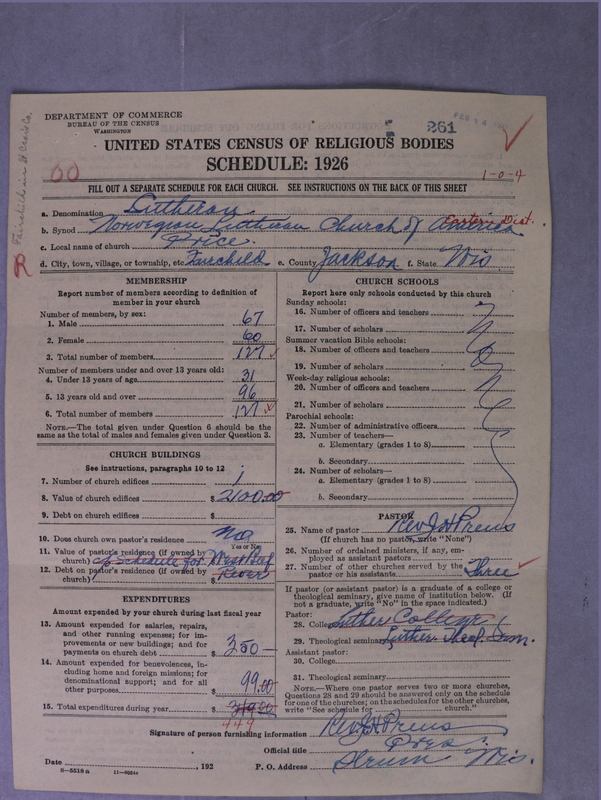 DEPARTMENT OF COMMERCE
BUREAU OF THE CENSUS
WASHINGTON
261
UNITED STATES CENSUS OF RELIGIOUS BODIES
SCHEDULE: 1926
1-0-4
FILL OUT A SEPARATE SCHEDULE FOR EACH CHURCH. SEE INSTRUCTIONS ON THE BACK OF THIS SHEET
a. Denomination Lutheran
b. Synod Norwegian Lutheran Church of America Eastern Dist.
c. Local name of church Price
d. City, town, village, or township, etc. Fairchild e. County Jackson f. State Wis
R
MEMBERSHIP
Report number of members according to definition of member in your church
Number of members, by sex:
1. Male 67
2. Female 60
3. Total number of members 127
Number of members under and over 13 years old:
4. Under 13 years of age 31
5. 13 years old and over 96
6. Total number of members 127
NOTE.—The total given under Question 6 should be the same as the total of males and females given under Question 3.
CHURCH BUILDINGS
See instructions, paragraphs 10 to 12
7. Number of church edifices 1
8. Value of church edifices $2100.00
9. Debt on church edifices $
10. Does church own pastor's residence no
Yes or No
11. Value of pastor's residence (if owned by church) $ Schedule for West Beef
12. Debt on pastor's residence (if owned by church) River
EXPENDITURES
Amount expended by your church during last fiscal year
13. Amount expended for salaries, repairs, and other running expenses; for improvements or new buildings; and for payments on church debt $350—
14. Amount expended for benevolences, including home and foreign missions; for denominational support; and for all other purposes $99.00
15. Total expenditures during year $
449
CHURCH SCHOOLS
Report here only schools conducted by this church
Sunday schools:
16. Number of officers and teachers
17. Number of scholars
Summer vacation Bible schools:
18. Number of officers and teachers
19. Number of scholars
Week-day religious schools:
20. Number of officers and teachers
21. Number of scholars
Parochial schools:
22. Number of administrative officers
23. Number of teachers—
a. Elementary (grades 1 to 8)
b. Secondary
24. Number of scholars—
a. Elementary (grades 1 to 8)
b. Secondary
PASTOR
25. Name of pastor Rev J H Preus
(If church has no pastor, write "None")
26. Number of ordained ministers, if any, employed as assistant pastors
27. Number of other churches served by the pastor or his assistants Three
If pastor (or assistant pastor) is a graduate of a college or theological seminary, give name of institution below. (If not a graduate, write "No" in the space indicated.)
Pastor:
28. College Luther College
29. Theological seminary Luther Theol. Sem.
Assistant pastor:
30. College
31. Theological seminary
NOTE.—Where one pastor serves two or more churches, Questions 28 and 29 should be answered only on the schedule for one of the churches; on the schedules for the other churches, write "See schedule for church."
Signature of person furnishing information Rev J H Preus
Official title Pres.
Date , 192 P. O. Address Strum Wis.
8—5518a 11—9034a